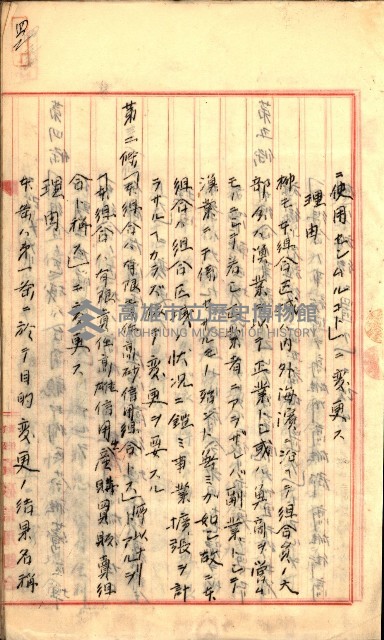 ニ使用セシムルコト」ニ変更ス
理由
抑モ本組合区域ハ内外海濱ニ沿フテ組合員ノ大
部分ハ漁業ヲ以テ正業トシ或ハ魚商ヲ営ム
モノニシテ若シ正業者ニアラザレバ副業トシテ
漁業ニ干係セザルモノ殆ント無ミカ如シ故ニ本
組合ハ組合区域ノ状況ニ鑑ミ事業ノ拡張ヲ計
ラザルベカラズ変更ヲ要スル
第二條「本組合ハ有限責任高砂信用組合ト称ス」トアルヲ
「本組合ハ有限責任高雄信用生産購買販賣組
合ト称ス」ニ変更ス
理由
本案ハ第一条ニ於テ目的変更ノ結果名称
高雄市立歷史博物館
KAOHSIUNG MUSEUM OF HISTORY